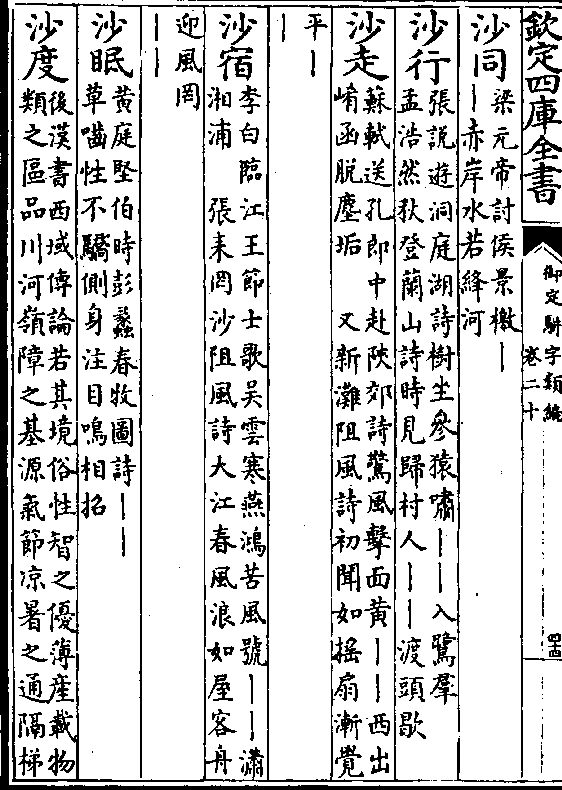 欽定四庫全書
御定駢字類編
卷二十
沙同
梁元帝討侯景檄丨
丨赤岸水若絳河
沙行
張説遊洞庭湖詩樹坐參猿嘯丨丨入鷺羣
孟浩然秋登蘭山詩時見歸村人丨丨渡頭歇
沙走
蘇軾送孔郎中赴陜郊詩驚風擊面黄丨丨西出
崤函脱塵垢　又新灘阻風詩初聞如摇扇漸覺
平丨
丨
沙宿
李白臨江王節士歌吴雲寒燕鴻苦風號丨丨瀟
湘浦　張耒罔沙阻風詩大江春風浪如屋客舟
迎風罔
丨丨
沙眠
黄庭堅伯時彭蠡春牧圖詩丨丨
草嚙性不驕側身注目鳴相招
沙度
後漢書西域傳論若其境俗性智之優薄産載物
類之區品川河嶺障之基源氣節凉暑之通隔梯